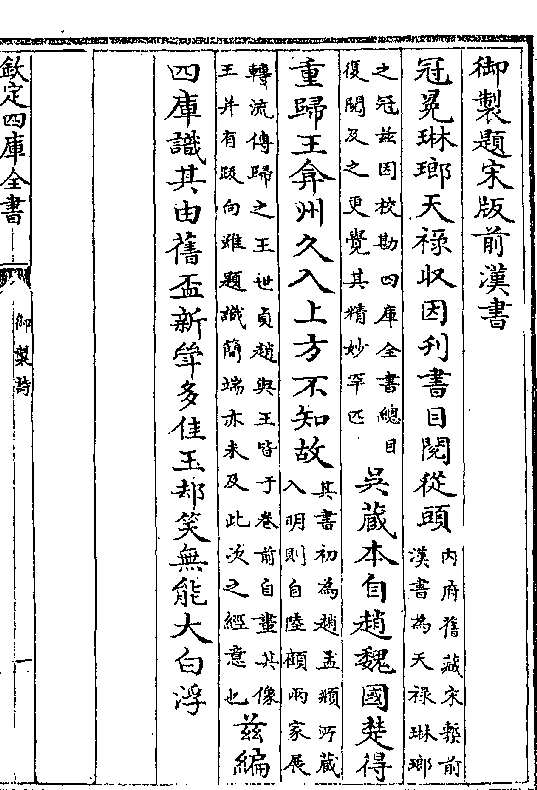 御製題宋版前漢書
冠冕琳瑯天祿收因刋書目閱從頭
内府舊藏宋槧前
漢書為天祿琳瑯
之冠兹因校勘四庫全書總目
復閱及之更覺其精妙罕匹
吳藏本自趙魏國楚得
重歸王弇州久入上方不知故
其書初為趙孟頫所藏
入明則自陸顧兩家展
轉流傳歸之王世貞趙與王皆于卷前自畫其像
王并有跋向雖題識簡端亦未及此次之經意也
兹編
四庫識其由舊盃新斚多佳玉却笑無能大白浮
欽定四庫全書
御製詩
一